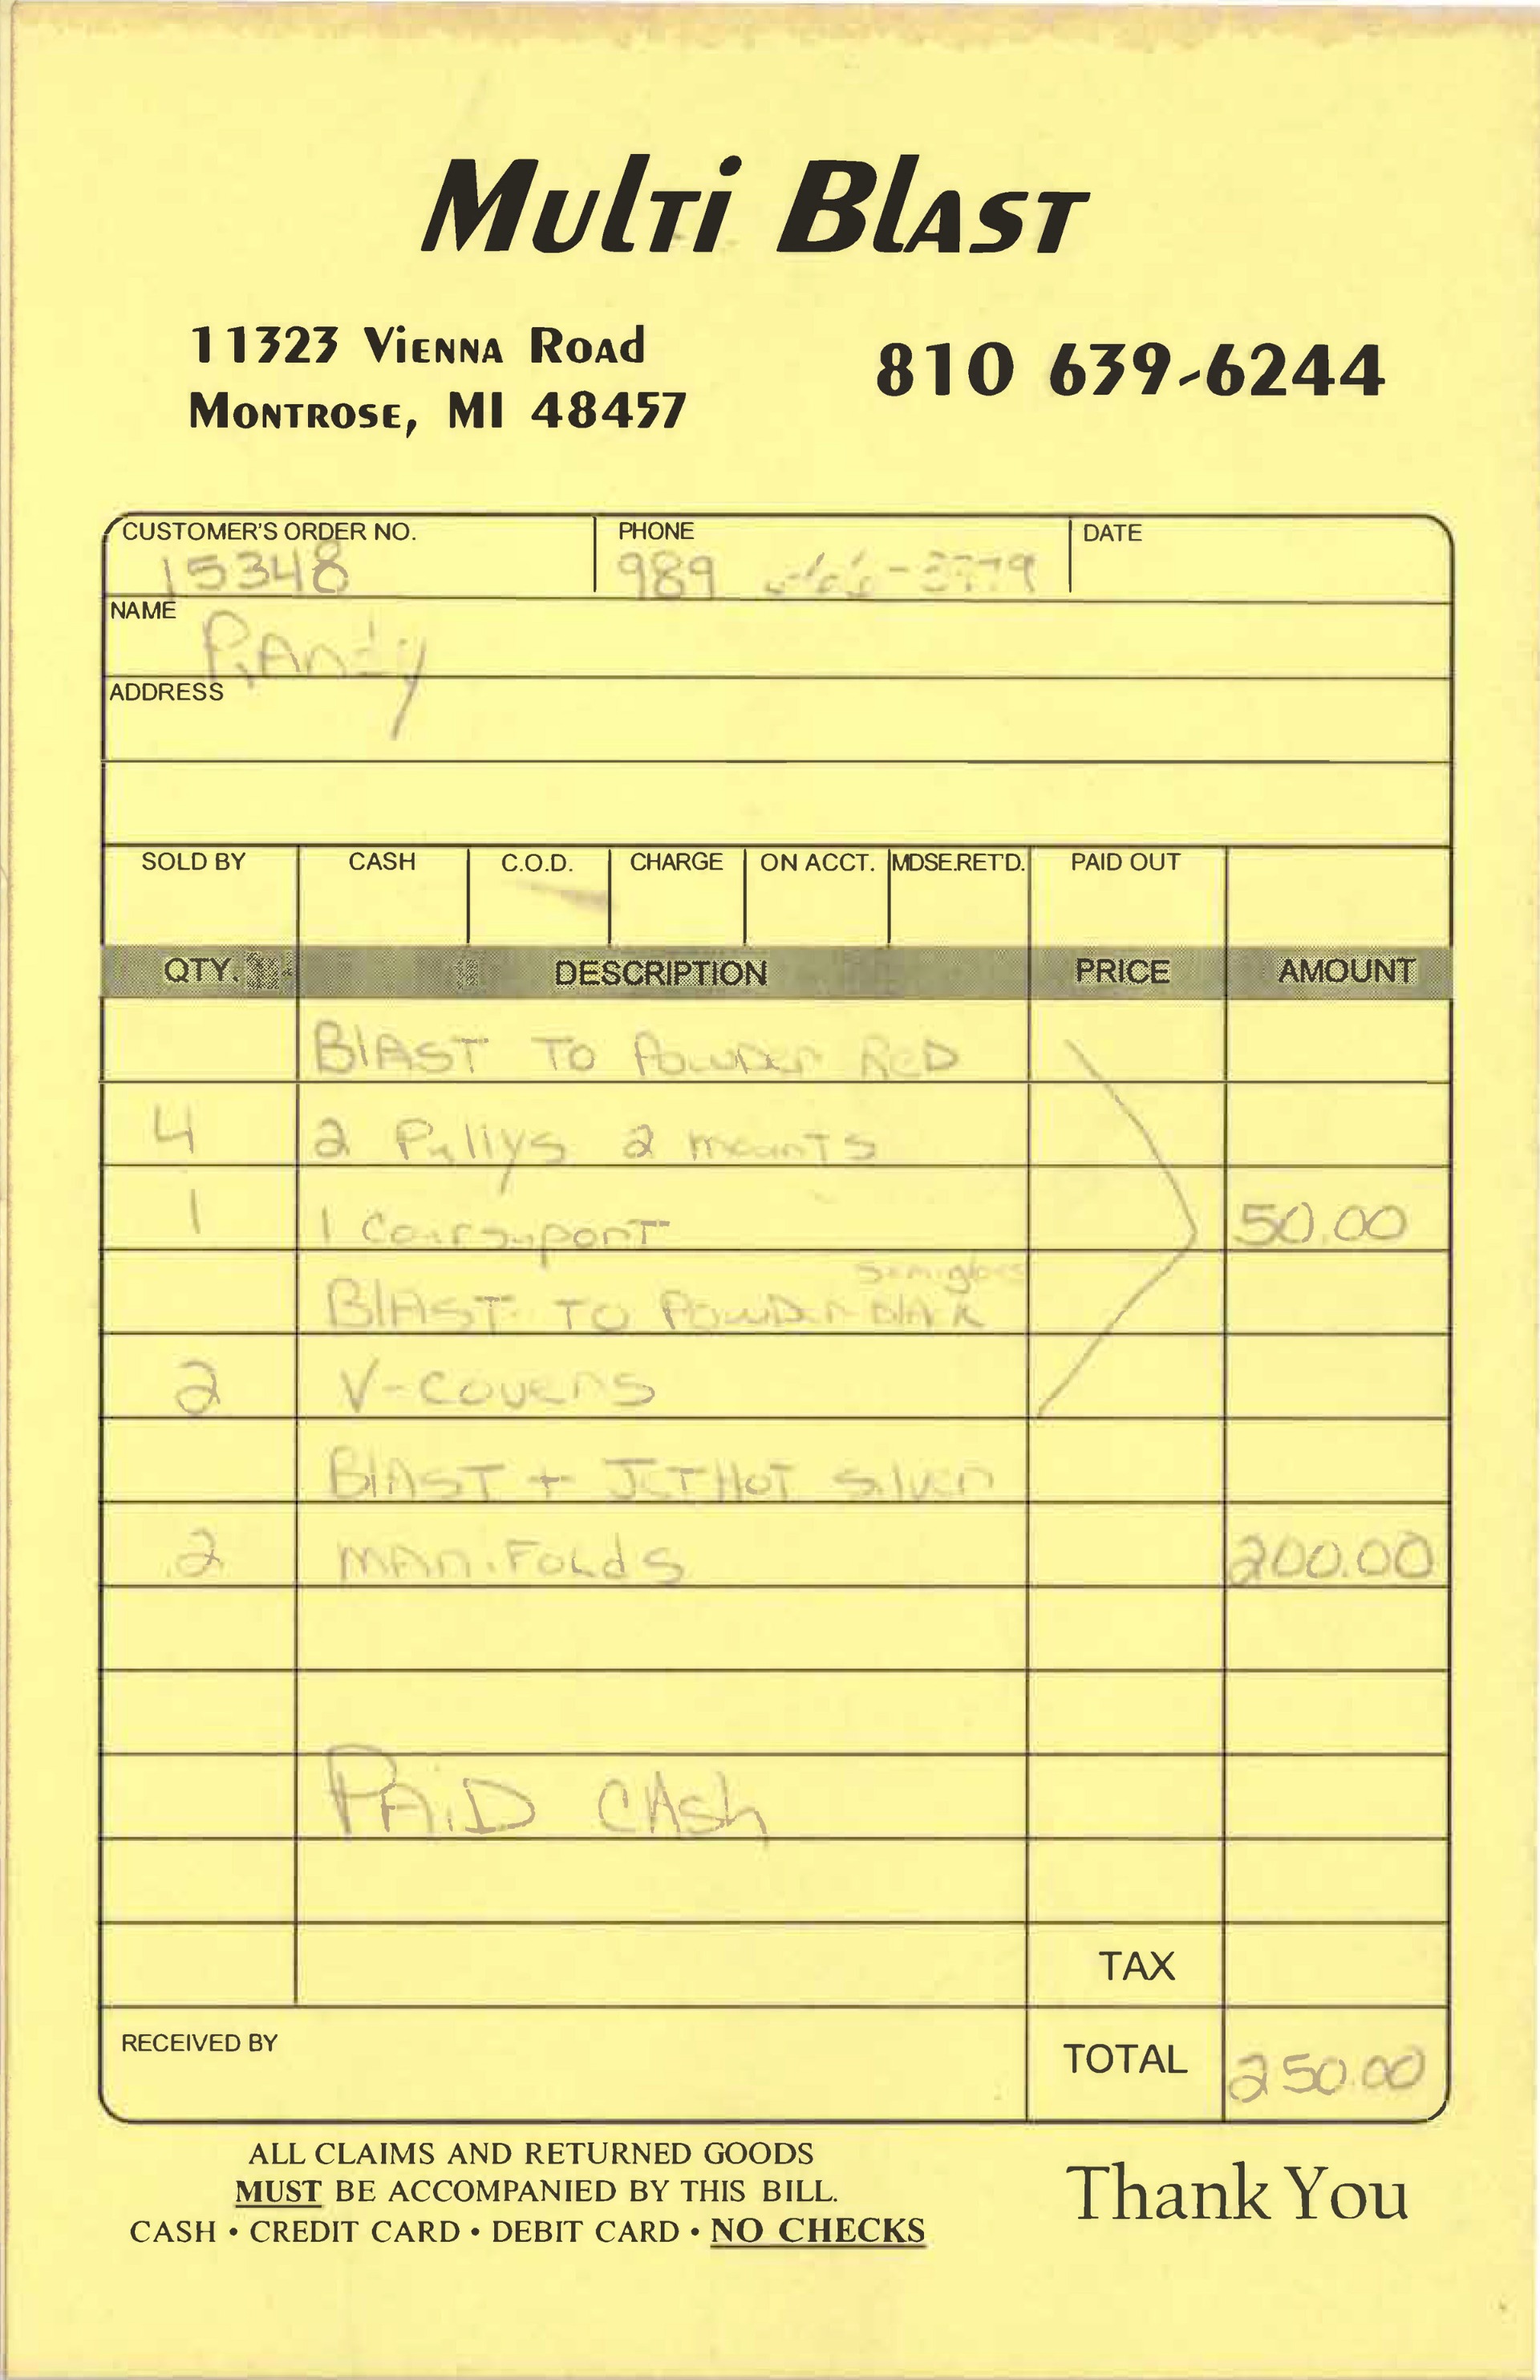 Multi Blast
11323 Vienna Road
Montrose, MI 48457
810 639-6244
CUSTOMER'S ORDER NO. PHONE DATE
15348 989
NAME
Randy
ADDRESS
SOLD BY CASH C.O.D. CHARGE ON ACCT. MDSE.RET'D. PAID OUT
QTY. DESCRIPTION PRICE AMOUNT
BlAST TO POWDER RED
4 2 Pullys 2 mounts
1 1 50.00
Semigloss
BlAST TO POWDER BlAcK
2 V-COVERS
BlAST + JETHOT SilVer
2 MANiFOLdS 200.00
PAiD CASh
TAX
RECEIVED BY TOTAL 250.00
ALL CLAIMS AND RETURNED GOODS
MUST BE ACCOMPANIED BY THIS BILL.
CASH • CREDIT CARD • DEBIT CARD • NO CHECKS
Thank You